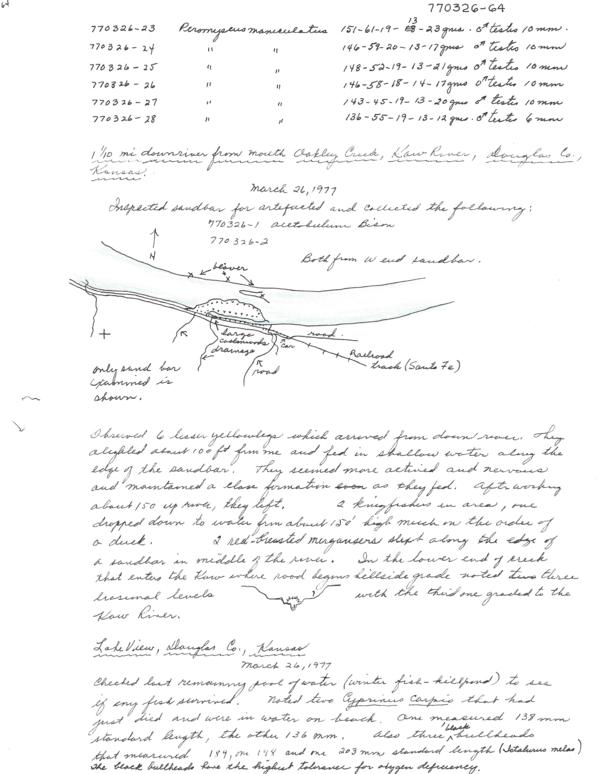 770326-64
770326-23 Peromyscus maniculatus 151-61-19-13-23 gms. ♂ testis 10 mm.
770326-24 " " 146-59-20-13-17 gms ♂ testis 10 mm
770326-25 " " 148-52-19-13-21 gms ♂ testis 10 mm
770326-26 " " 146-58-18-14-17 gms ♂ testis 10 mm
770326-27 " " 143-45-19-13-20 gms ♂ testis 10 mm
770326-28 " " 136-55-19-13-12 gms. ♂ testis 6 mm
1 1/10 mi downriver from mouth Oakley Creek, Kaw River, Douglas Co.,
Kansas.
March 26, 1977
Inspected sandbar for artefacts and collected the following:
770326-1 acetabulum Bison
770326-2
Both from W end sandbar.
N
beaver
large
cottonwoods
drainage
car
road
road
Railroad
track (Santa Fe)
only sand bar
examined is
shown.
Observed 6 lesser yellowlegs which arrived from down river. They
alighted about 100 ft from me and fed in shallow water along the
edge of the sandbar. They seemed more active and nervous
and maintained a close formation as they fed. After working
about 150 up river, they left. 2 kingfishers in area, one
dropped down to water from about 150' high much on the order of
a duck. 2 red-breasted mergansers slept along the edge of
a sandbar in middle of the river. In the lower end of creek
that enters the Kaw where road begins hillside grade noted two three
erosional levels with the third one graded to the
Kaw River.
Lake View, Douglas Co., Kansas
March 26, 1977
Checked last remaining pool of water (winter fish-kill pond) to see
if any fish survived. Noted two Cyprinus carpio that had
just died and were in water on beach. One measured 138 mm
standard length, the other 136 mm. Also three black bullheads
that measured 189, one 198 and one 203 mm standard length (Ictalurus melas)
The black bullheads have the highest tolerance for oxygen deficiency.